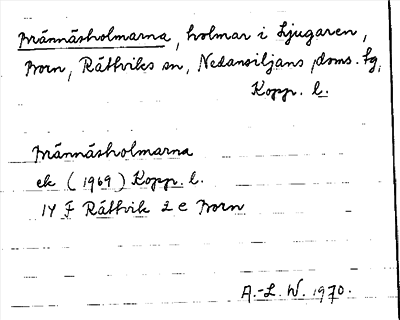 Männäsholmarna, holmar i Ljugaren,
Born, Rättviks sn, Nedansiljans doms. fg,
Kopp. l.
Männäsholmarna
ek (1969) Kopp. l.
14 F Rättvik 2 e Born
A.-L. W. 1970.